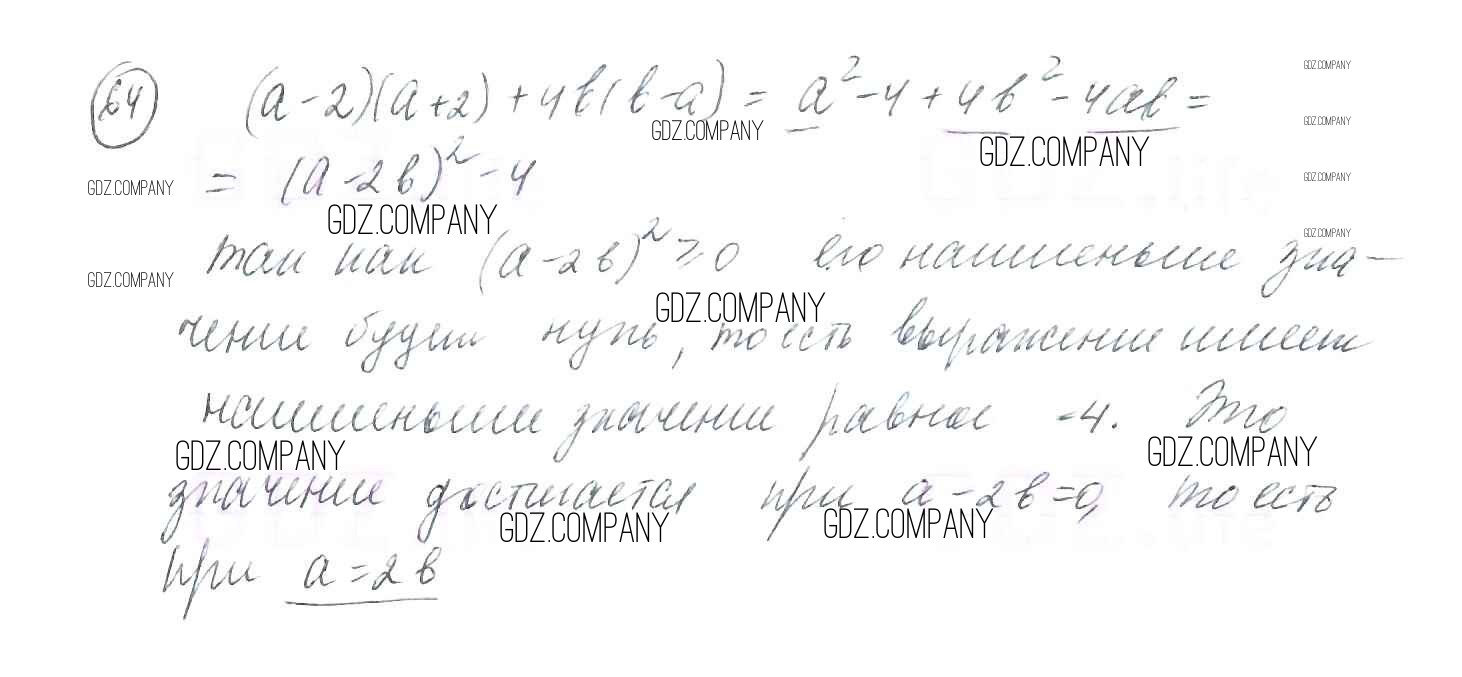 64 (a-2)(a+2)+4b(b-a)= a²-4+4b²-4ab=
GDZ.COMPANY
GDZ.COMPANY
GDZ.COMPANY
GDZ.COMPANY
= (a-2b)²-4
GDZ.COMPANY
GDZ.COMPANY
GDZ.COMPANY
GDZ.COMPANY
так как (a-2b)²≥0 его наименьшее зна-
GDZ.COMPANY
GDZ.COMPANY
чение будет нуль, то есть выражение имеет
наименьшее значение равное -4. Это
GDZ.COMPANY
GDZ.COMPANY
значение достигается при a-2b=0, то есть
GDZ.COMPANY
GDZ.COMPANY
при a=2b